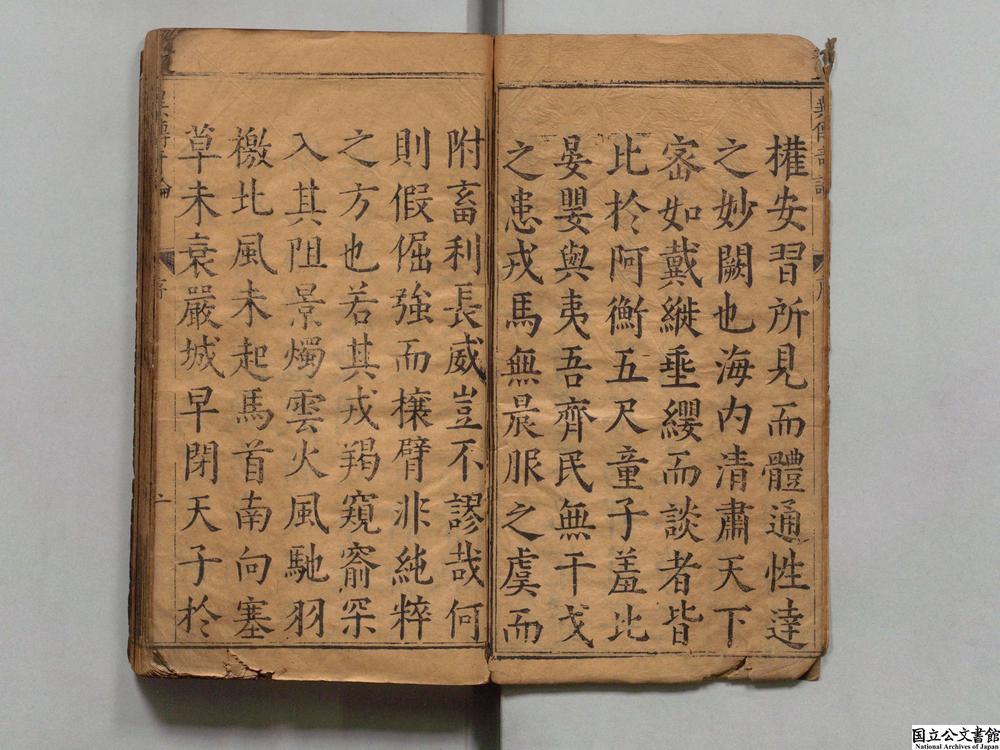 權安習所見而體通性達
之妙闕也海内清肅天下
宻如戴縰垂纓而談者皆
比於阿衡五尺童子羞比
晏嬰與夷吾齊民無干戈
之患戎馬無晨服之虞而
附畜利長威豈不謬哉何
則假倔強而攘臂非純粹
之方也若其戎羯窺窬罙
入其阻景燭雲火風馳羽
檄北風未起馬首南向塞
草未衰嚴城早閉天子於
序
国立公文書館
National Archives of Japan